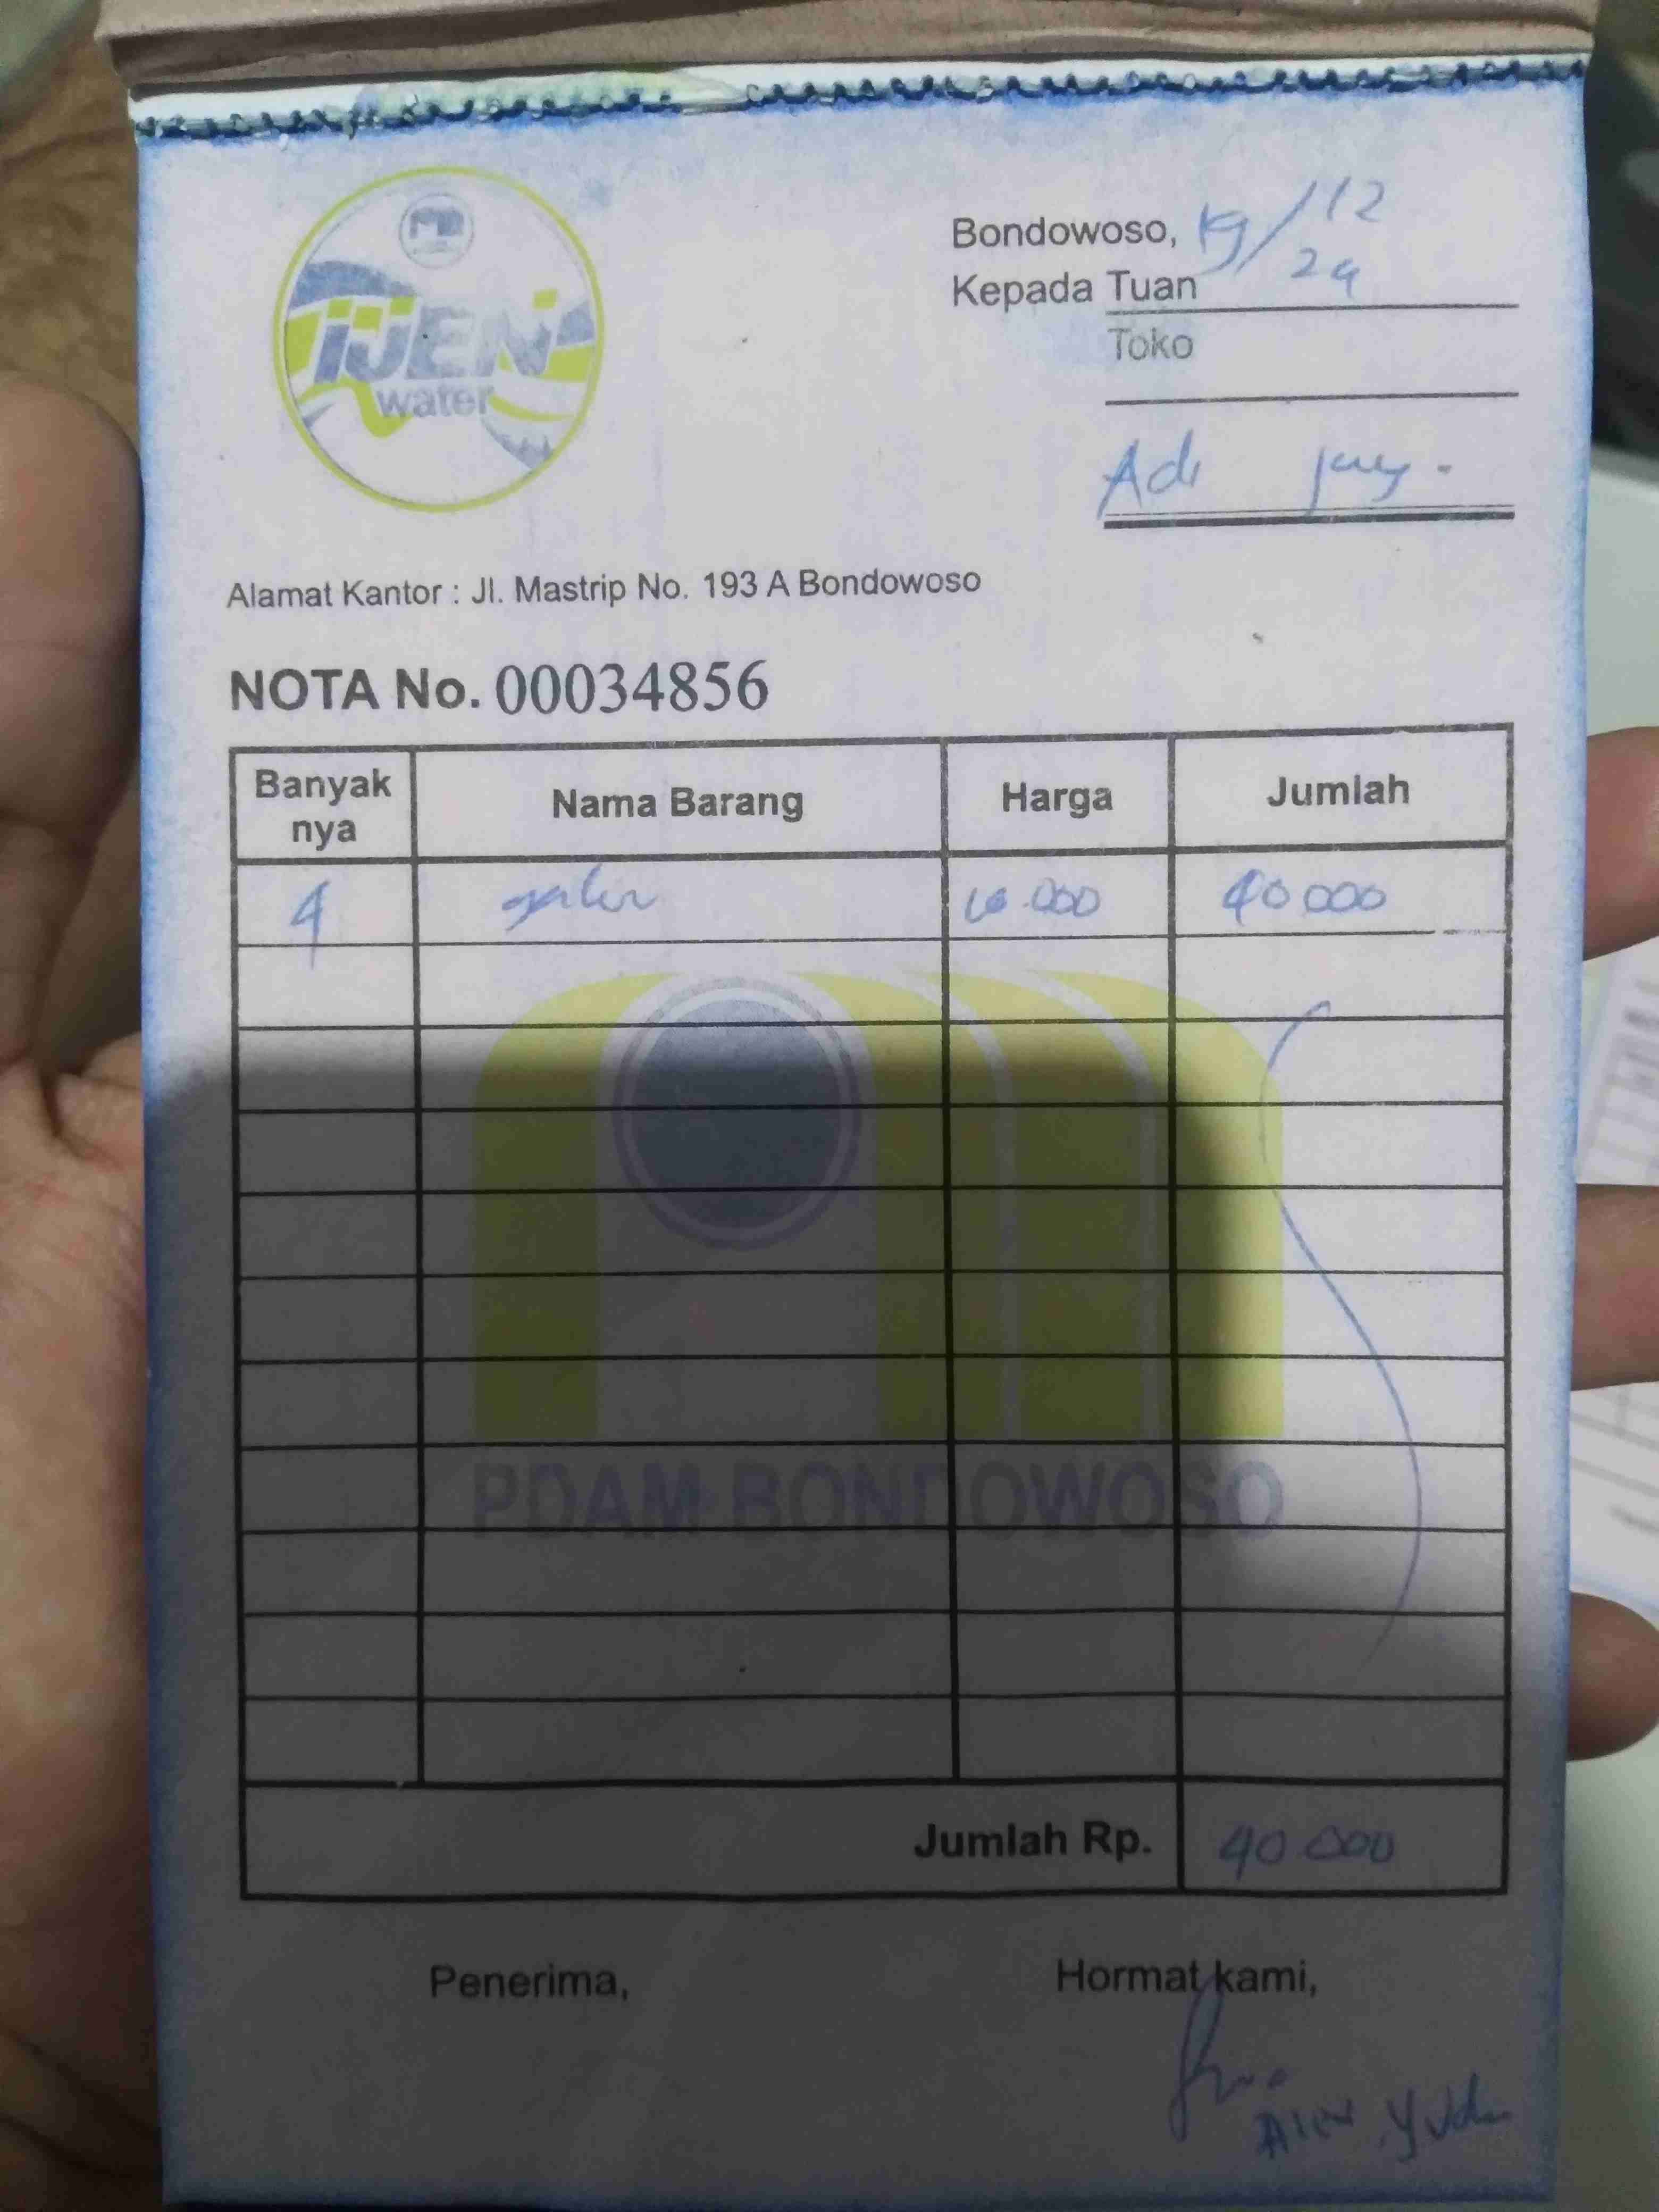 IJEN
water
Bondowoso, 19/12
24
Kepada Tuan
Toko
Adi
Alamat Kantor : Jl. Mastrip No. 193 A Bondowoso
NOTA No. 00034856
Banyak nya Nama Barang Harga Jumlah
4 galon 10.000 40 000
PDAM BONDOWOSO
Jumlah Rp. 40 000
Penerima, Hormat kami,